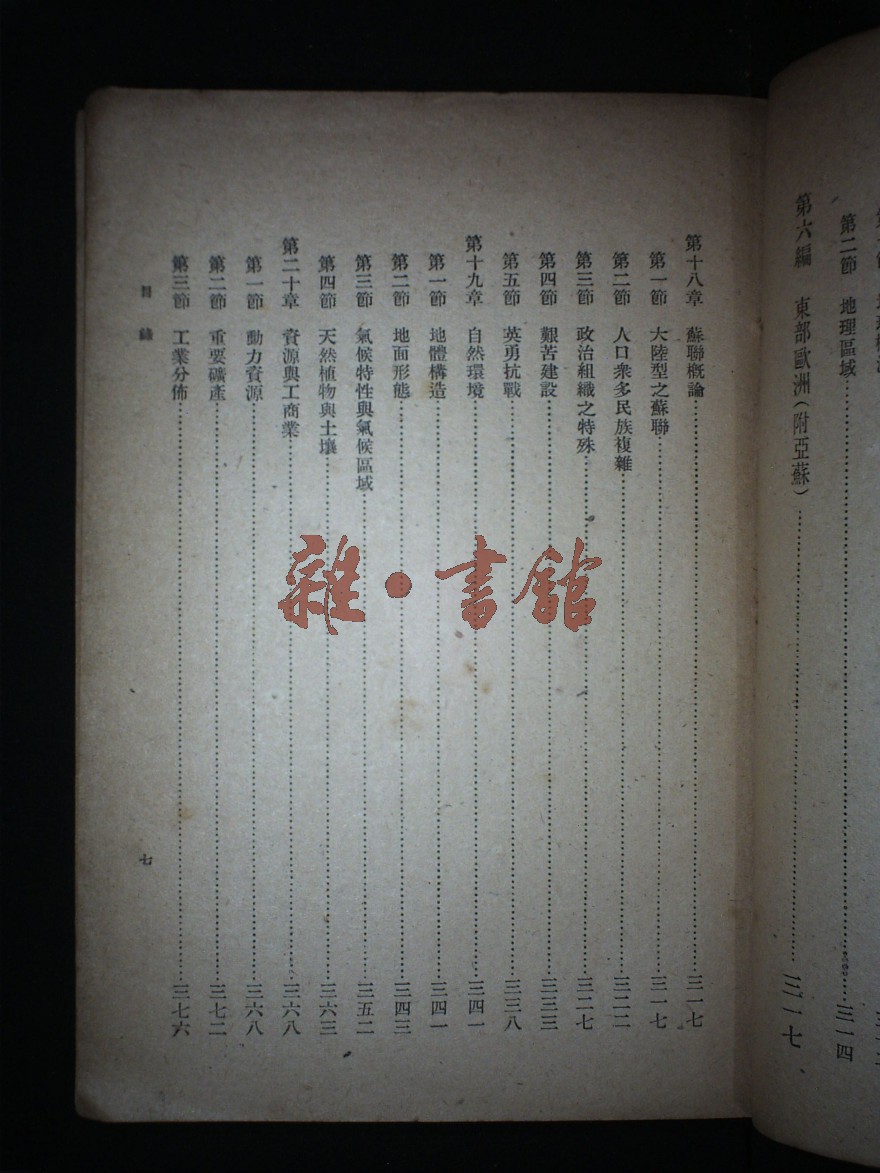 第二節 地理區域……三一四
第六編 東部歐洲(附亞蘇)……三一七
第十八章 蘇聯概論……三一七
第一節 大陸型之蘇聯……三一七
第二節 人口衆多民族複雜……三二二
第三節 政治組織之特殊……三二七
第四節 艱苦建設……三三三
第五節 英勇抗戰……三三八
第十九章 自然環境……三四一
第一節 地體構造……三四一
第二節 地面形態……三四三
第三節 氣候特性與氣候區域……三五二
第四節 天然植物與土壤……三六三
第二十章 資源與工商業……三六八
第一節 動力資源……三六八
第二節 重要礦產……三七二
第三節 工業分佈……三七六
目錄 七
雜·書館